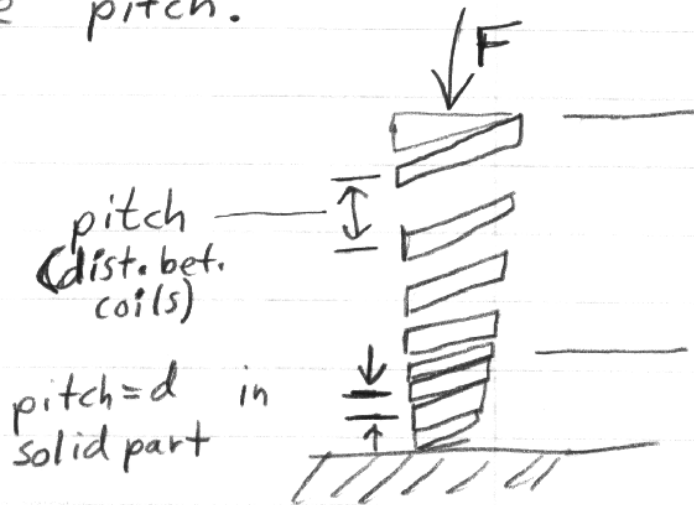 pitch.
F
pitch
(dist. bet.
coils)
pitch=d in
solid part